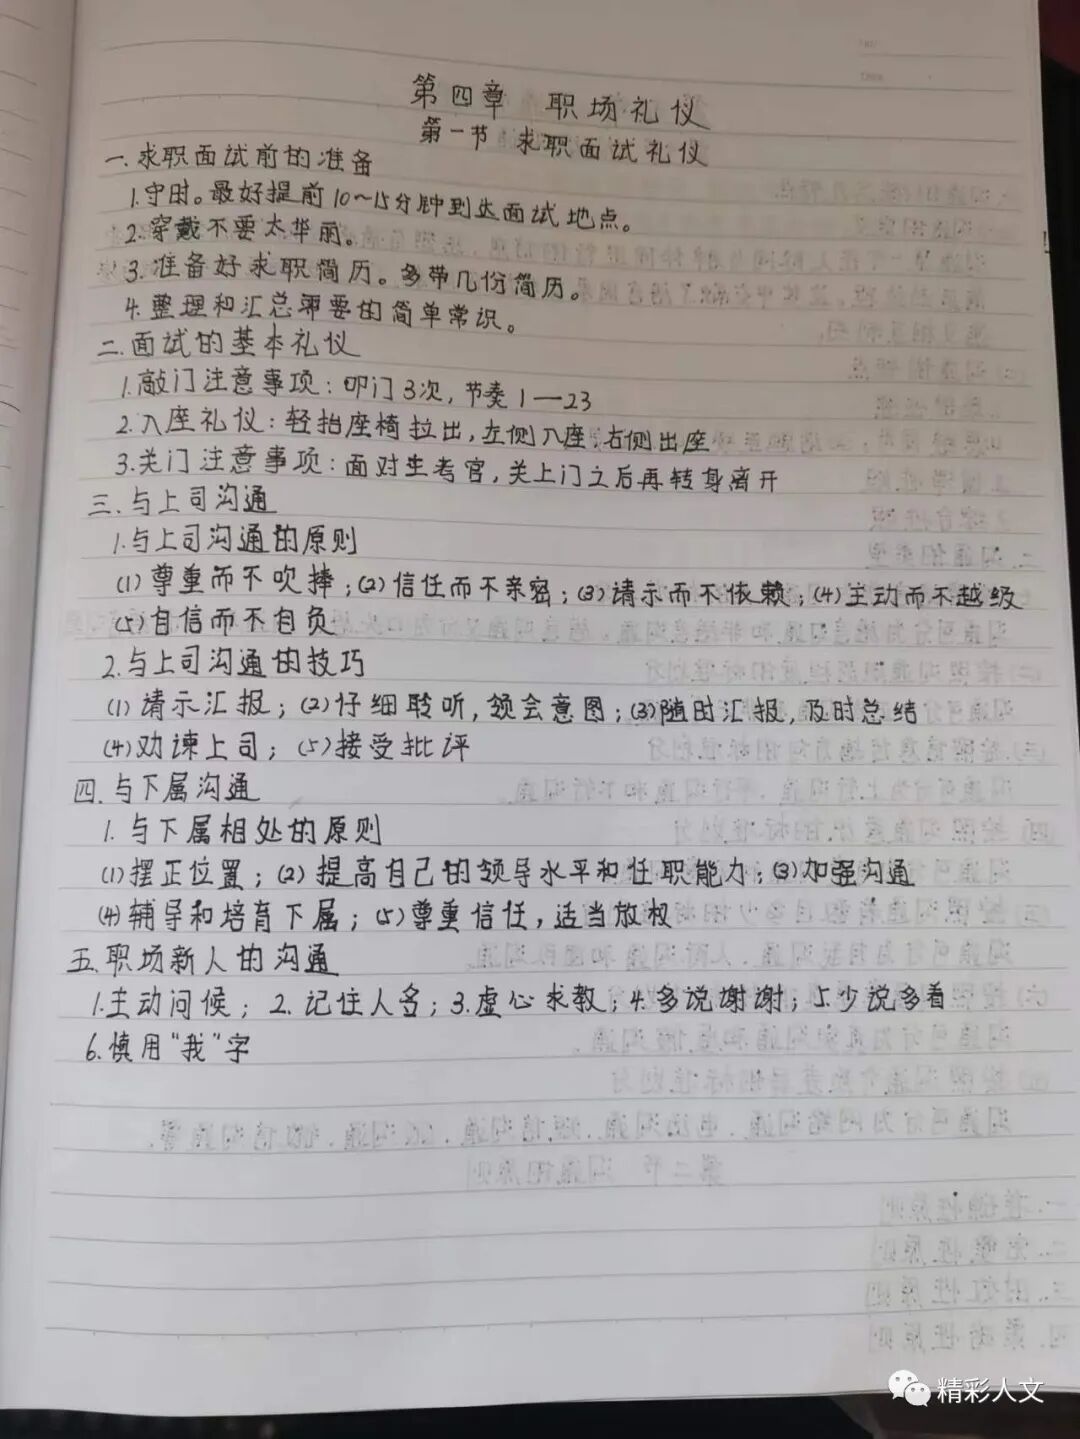 第四章 职场礼仪
第一节 求职面试礼仪
一.求职面试前的准备
1.守时。最好提前10~15分钟到达面试地点。
2.穿戴不要太华丽。
3.准备好求职简历。多带几份简历。
4.整理和汇总需要的简单常识。
二.面试的基本礼仪
1.敲门注意事项:叩门3次,节奏1—23
2.入座礼仪:轻抬座椅拉出,左侧入座,右侧出座
3.关门注意事项:面对主考官,关上门之后再转身离开
三.与上司沟通
1.与上司沟通的原则
(1)尊重而不吹捧;(2)信任而不亲密;(3)请示而不依赖;(4)主动而不越级
(5)自信而不自负
2.与上司沟通的技巧
(1)请示汇报;(2)仔细聆听,领会意图;(3)随时汇报,及时总结
(4)劝谏上司;(5)接受批评
四.与下属沟通
1.与下属相处的原则
(1)摆正位置;(2)提高自己的领导水平和任职能力;(3)加强沟通
(4)辅导和培育下属;(5)尊重信任,适当放权
五.职场新人的沟通
1.主动问候;2.记住人名;3.虚心求教;4.多说谢谢;5.少说多看
6.慎用“我”字
精彩人文